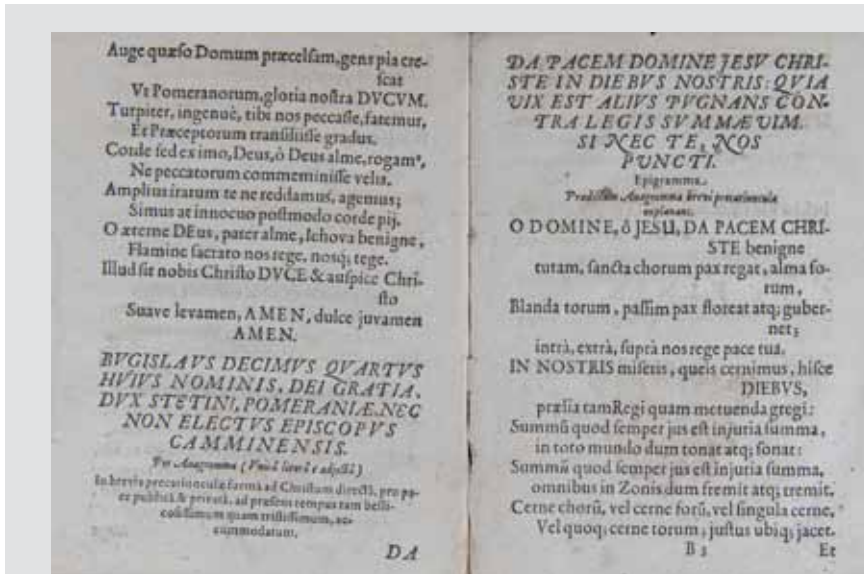 Auge quæso Domum præcelsam, gens pia cre-
scat
Vt Pomeranorum, gloria nostra DVCVM.
Turpiter, ingenuè, tibi nos peccasse, fatemur,
Et Præceptorum transsiliisse gradus.
Corde sed ex imo, Deus, ô Deus alme, rogamꝰ,
Ne peccatorum commeminisse velis.
Amplius iratum te ne reddamus, agemus;
Simus at innocuo postmodo corde pij.
O æterne DEus, pater alme, Iehova benigne,
Flamine sacrato nos rege, nosq; tege.
Illud sit nobis Christo DVCE & auspice Chri-
sto
Suave levamen, AMEN, dulce juvamen
AMEN.
BVGISLAVS DECIMVS QVARTVS
HVIVS NOMINIS, DEI GRATIA,
DVX STETINI, POMERANIÆ NEC
NON ELECTVS EPISCOPVS
CAMMINENSIS.
Per Anagramma
In brevis precatiunculæ formã ad Christum directã, pro pa-
ce publicâ & privatâ, ad præsens tempus tam belli-
cosissimum quam tristissimum, ac-
commodatum.
DA
DA PACEM DOMINE JESV CHRI-
STE IN DIEBVS NOSTRIS: QVIA
VIX EST ALIVS PVGNANS CON-
TRA LEGIS SVMMÆ VIM.
SI NEC TE, NOS
PVNCTI.
Epigramma.
Prædictum Anagramma brevi precatiuncula
explanans.
O DOMINE, ô JESU, DA PACEM CHRI-
STE benigne
tutam, sancta chorum pax regat, alma fo-
rum,
Blanda torum, passim pax floreat atq; guber-
net;
intrà, extrà, suprà nos rege pace tua.
IN NOSTRIS miseris, queis cernimus, hisce
DIEBVS,
præsia tam Regi quam metuenda gregi:
Summũ quod semper jus est injuria summa,
in toto mundo dum tonat atq; sonat:
Summũ quod semper jus est injuria summa,
omnibus in Zonis dum fremit atq; tremit.
Cerne chorũ, vel cerne forũ, vel singula cerne,
Vel quoq; cerne torum, justus ubiq; jacet.
B 3
Et